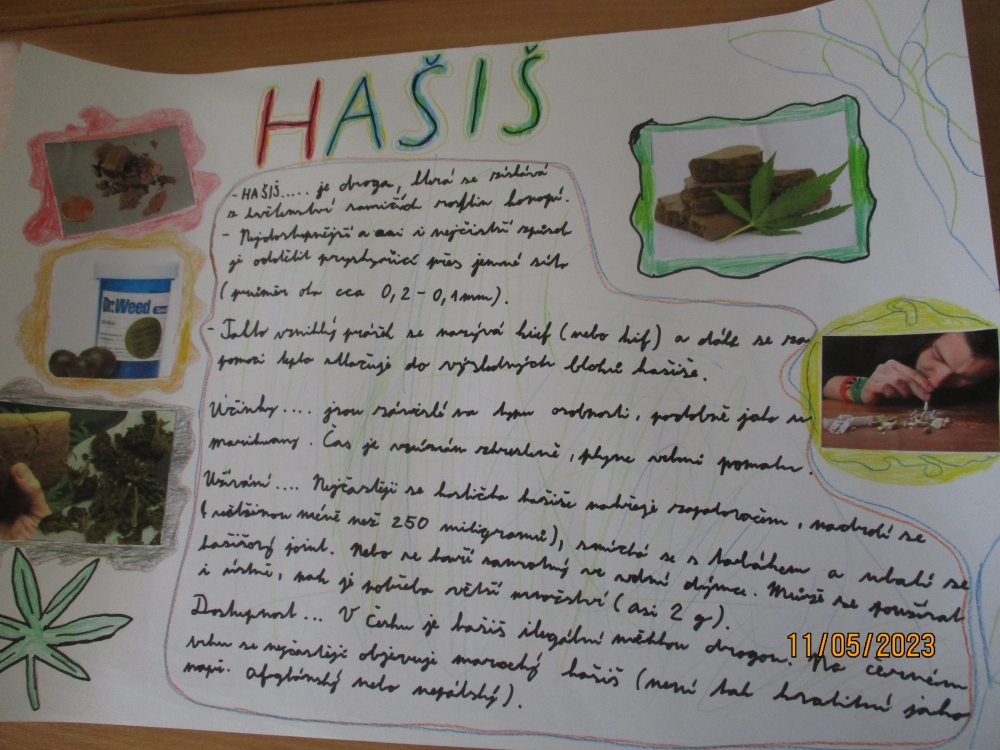 HAŠIŠ
- HAŠIŠ.... je droga, která se získává
z květenství samičích rostlin konopí.
- Nejdostupnější a asi i nejčistší způsob
je oddělit pryskyřici přes jemné síto
(průměr ok cca 0,2-0,1mm).
- Takto vzniklý prášek se nazývá kief (nebo kif) a dále se za
pomoci tepla stlačuje do výsledných bloků hašiše.
Účinky.... jsou závislé na typu osobnosti, podobně jako u
marihuany. Čas je vnímán zkresleně, plyne velmi pomalu.
Užívání.... Nejčastěji se kostička hašiše nahřeje zapalovačem, nadrolí se
(většinou méně než 250 miligramů), smíchá se s tabákem a ubalí se
hašišový joint. Nebo se kouří samotný ve vodní dýmce. Může se používat
i ústně, pak je potřeba větší množství (asi 2 g).
Dostupnost... V Česku je hašiš ilegální měkkou drogou. Na černém
trhu se nejčastěji objevuje marocký hašiš (není tak kvalitní jako
např. afghánský nebo nepálský).
Dr.Weed
11/05/2023